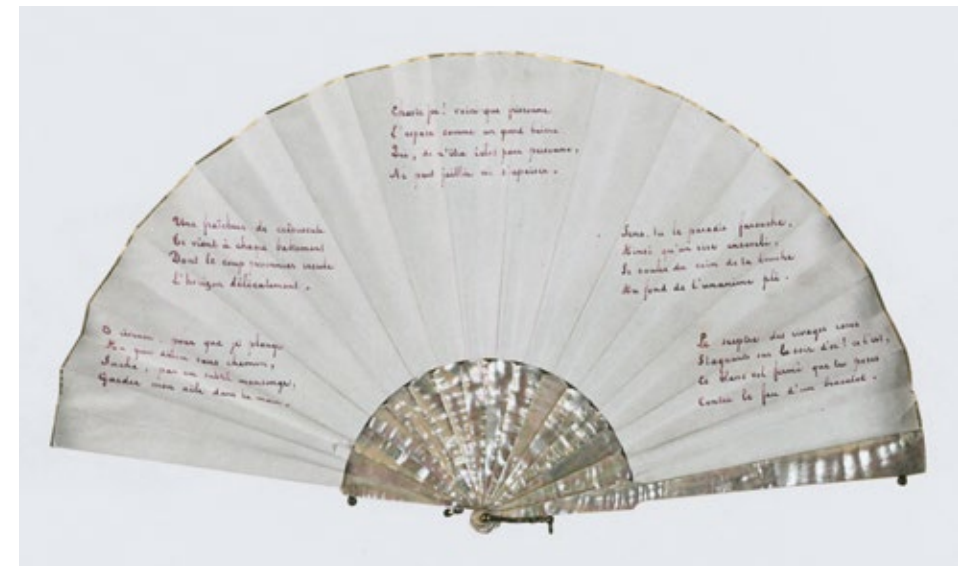 O rêveuse, pour que je plonge
Au pur délice sans chemin,
Sache, par un subtil mensonge,
Garder mon aile dans ta main.
Une fraîcheur de crépuscule
Te vient à chaque battement
Dont le coup prisonnier recule
L'horizon délicatement.
voici que frissonne
L'espace comme un grand baiser
Qui, de n'être pour personne,
Ne peut jaillir ni s'apaiser.
Sens-tu le paradis farouche,
Ainsi qu'un rire enseveli,
Se couler du coin de ta bouche
Au fond de l'unanime pli.
Le sceptre des rivages roses
Stagnants sur d'or! ce l'est,
Ce blanc vol fermé que tu poses
Contre le feu d'un bracelet.